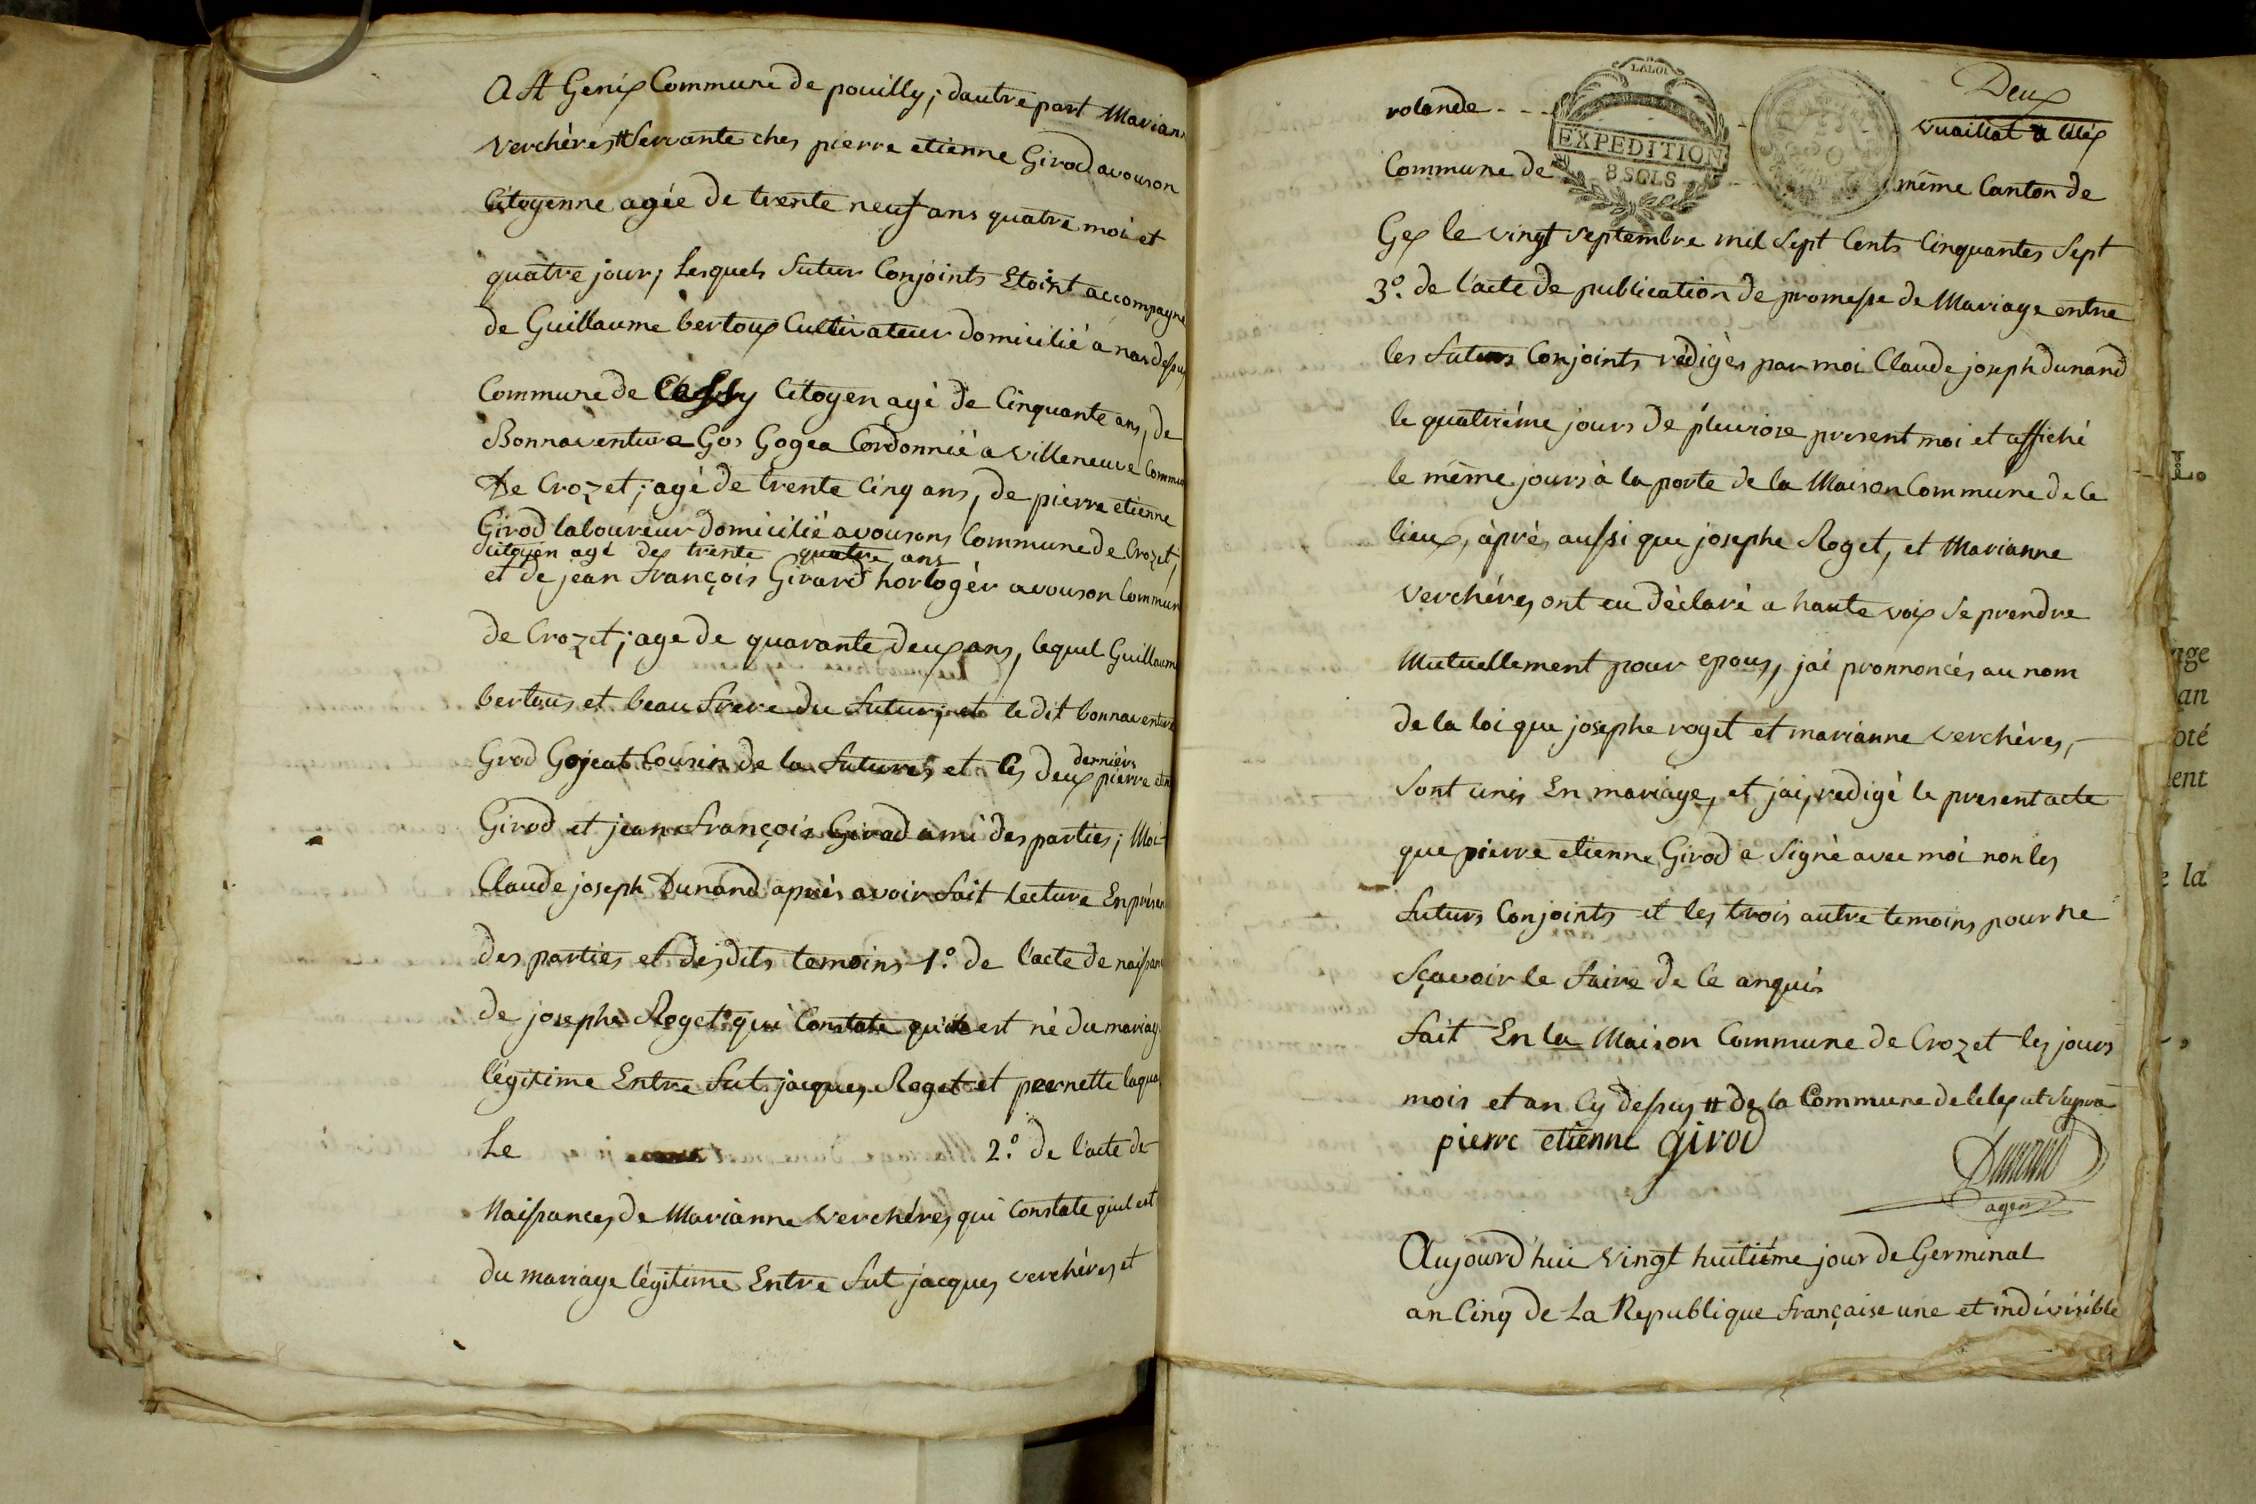 A St Genix Commune de pouilly; dautre part Mariann
Verchères # Servante ches pierre etienne Girod avouson
Citoyenne agée de trente neuf ans quatre moi et
quatre jour; Lesquels futur Conjoints Etoint accompagné
de Guillaume bertoux Cultivateur domicilié a nardessus
Commune de Cessy Citoyen agé de Cinquante ans, de
Bonnaventure Gos Gogea Cordonnié a Villeneuve Commu
De Crozet; agé de trente Cinq ans, de pierre etienne
Girod laboureur domicilié avousons Commune de Crozet,
citoyen agé de trente quatre ans
et de jean françois Girard horlogér avouson Commun
de Crozet; age de quarante deux ans, lequel Guillaum
bertous et beau frere du futur; et le dit bonnaventure
Grod Gojeat Cousin de la future, et les deux derniérs pierre etie
Girod et jean françois Girod ami des parties; Moi
Claude joseph Dunand aprés avoir fait lecture En présen
des parties et desdits temoins 1.° de l'acte de naissan
de josephe Roget qui Constate qu'il est né du mariag
légitime Entre fut jacques Roget et pernette laqua
Le 2.° de l'acte de
Naissances de Marianne Verchéres, qui Constate quil est
du mariage légitime Entre fut jacques verchéres et
Deux
rolande - - - vuaillat a Méx
LA LOI
EXPEDITION
8 SOLS
Commune de même Canton de
Gex le vingt septembre mil Sept Cents Cinquantes Sept
3.° de l'acte de publication de promesse de Mariage entre
les futurs Conjoints rédigés par moi Claude joseph dunand
le quatriéme jours de pluviose present moi et affiché
le même jours à la porte de la Maison Commune de Ce
lieux, àprés aussi que josephe Roget, et Marianne
Verchéres ont eu déclaré a haute voix se prendre
Mutuellement pour epous, jai pronnoncés au nom
de la loi que josephe roget et marianne verchères,
Sont unis En mariage, et jai, redigé le present acte
que pierre etienne Girod a Signé avec moi non les
futurs Conjoints et les trois autre temoins pour ne
Sçavoir le faire de Ce anquis
fait En la Maison Commune de Crozet les jours
mois et an Cy dessus # de la Commune de lelex ut supra
pierre etienne girod
Dunand
agent
Aujourd'hui Vingt huitiéme jour de Germinal
an Cinq de La Republique française une et indivisible
L.
age
an
oté
ent
e la